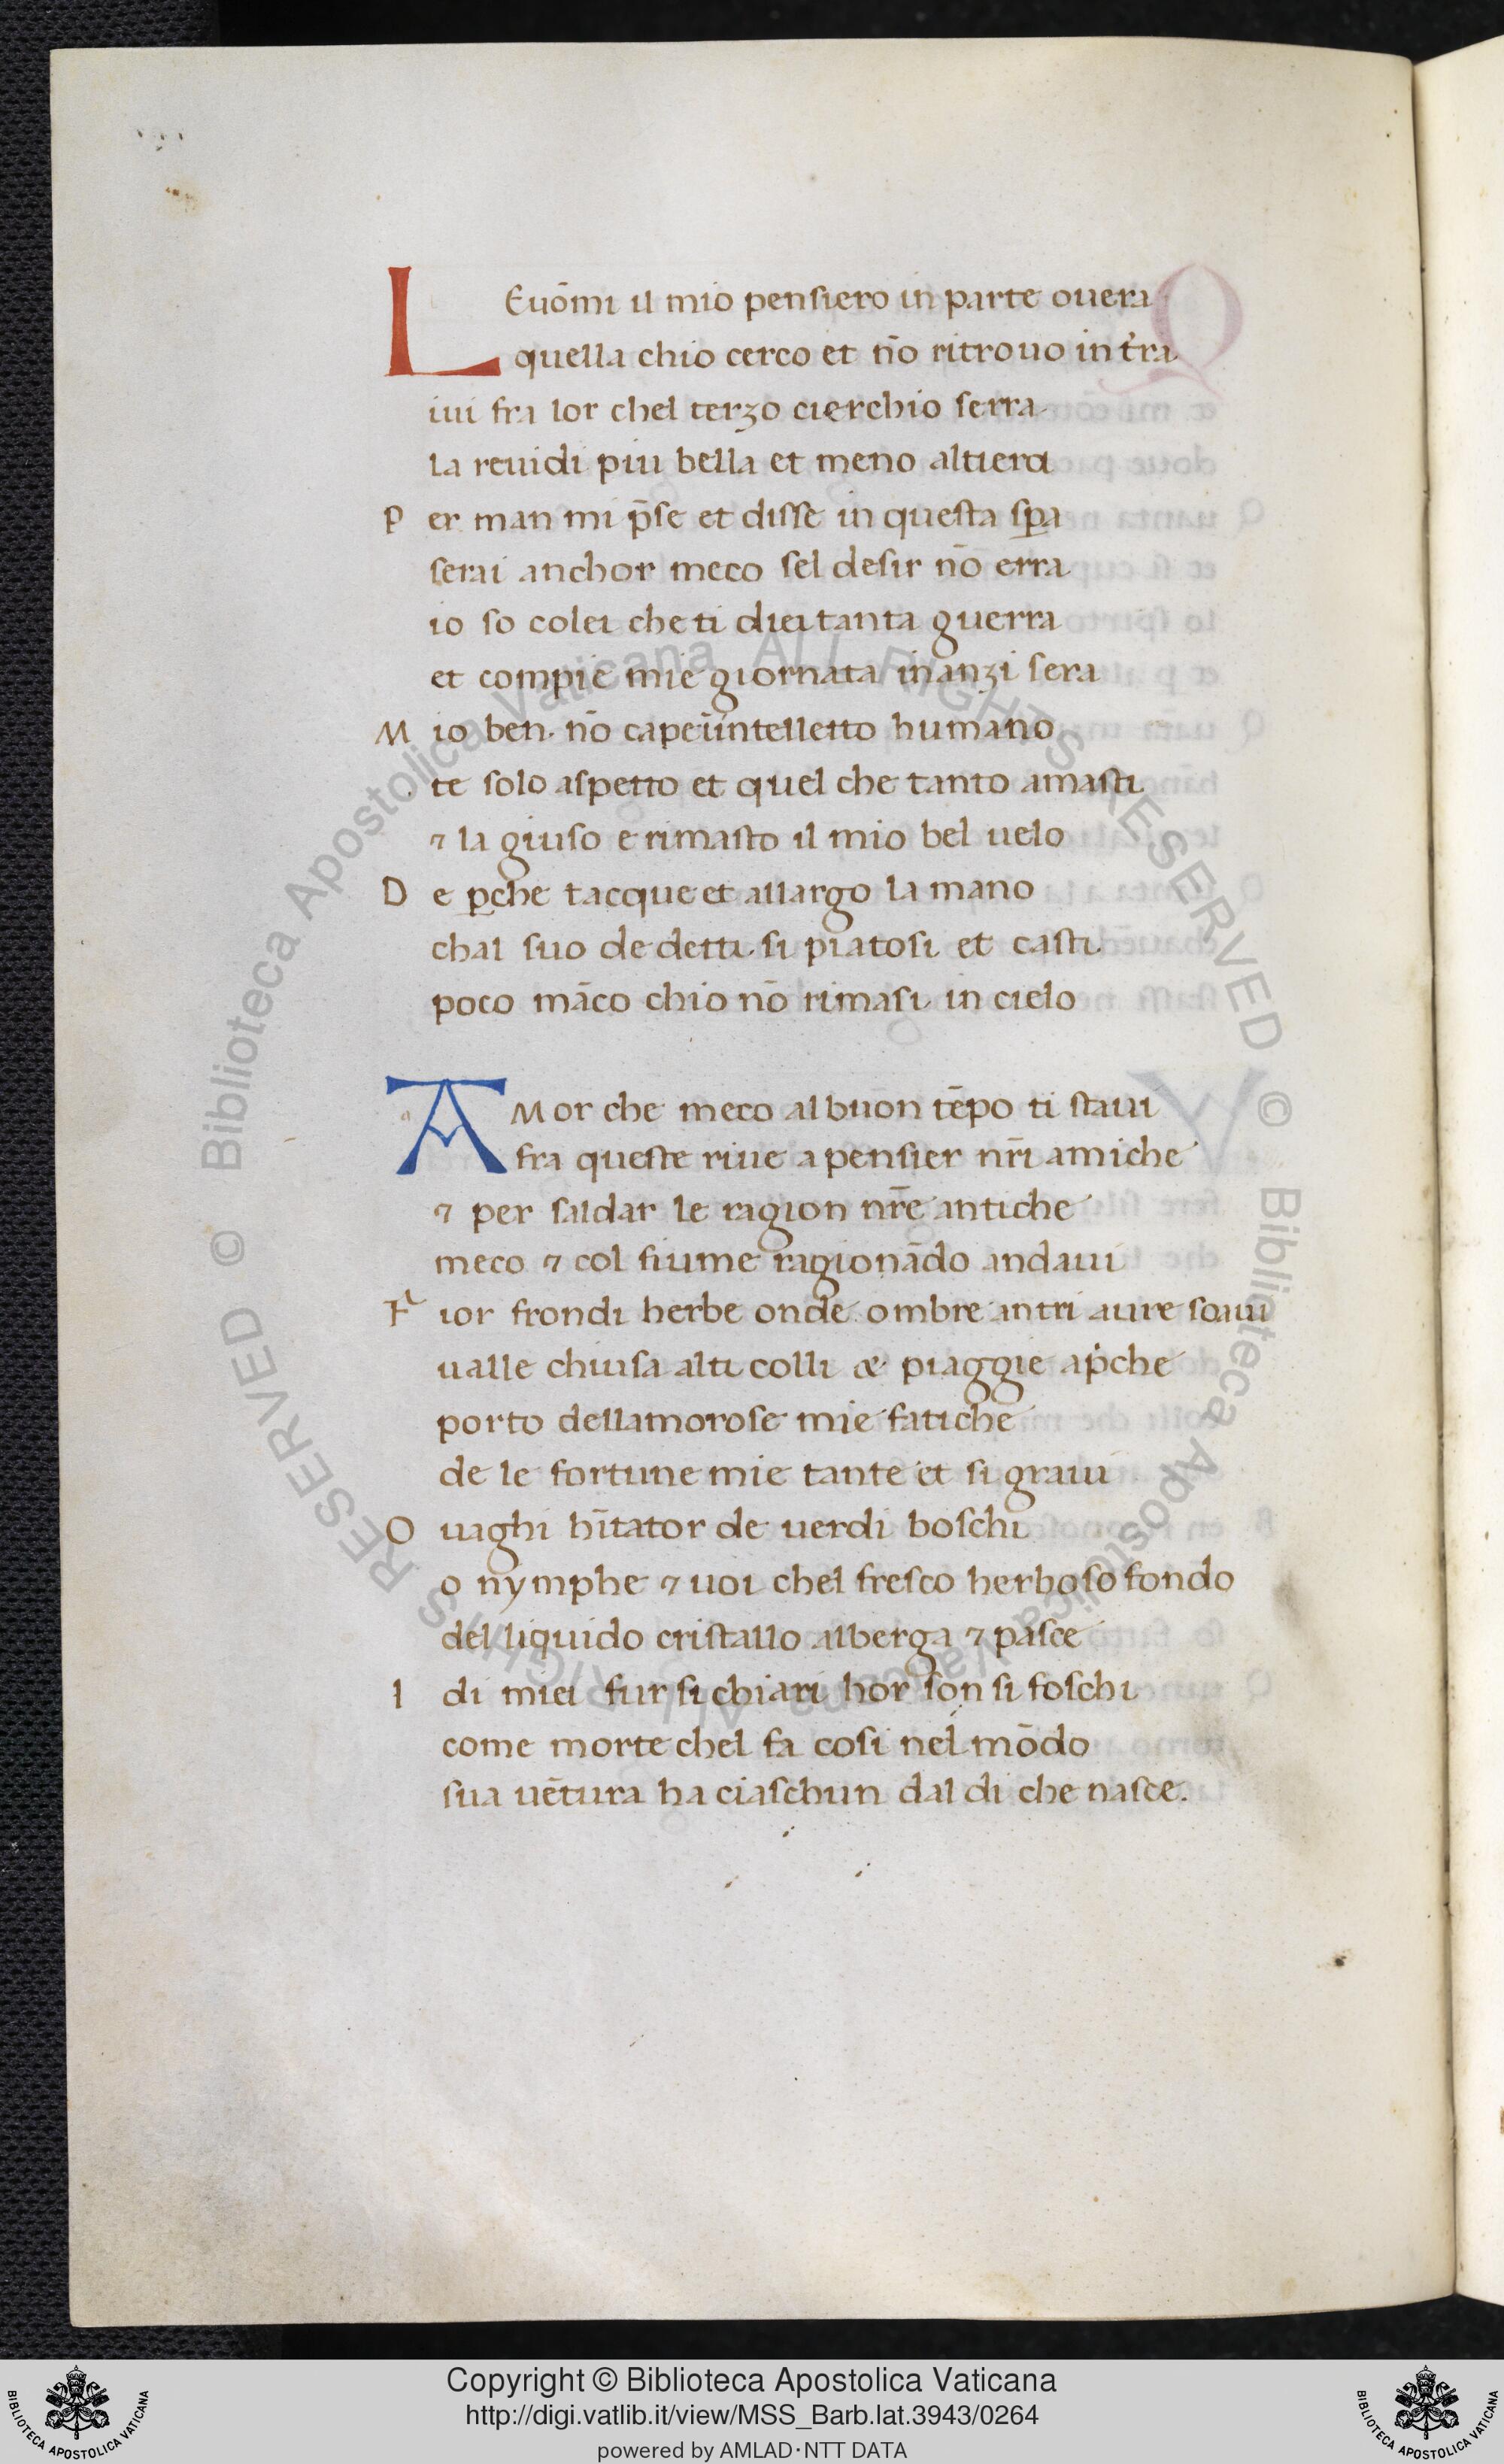 LEuōmi il mio pensiero in parte ouera
quella chio cerco et nō ritrouo in t̄ra
iui fra lor chel terzo cierchio serra
la reuidi piu bella et meno altiera
P er man mi p̄se et disse in questa sp̱a
serai anchor meco sel desir nō erra
io so colei che ti diei tanta guerra
et compie mie giornata inanzi sera
M io ben nō cape īintelletto humano
te solo aspetto et quel che tanto amasti
⁊ la giuso e rimasto il mio bel uelo
D e ꝑche tacque et allargo la mano
chal suo de detti si piatosi et casti
poco māco chio nō rimasi in cielo
AMor che meco al buon tēpo ti staui
fra queste riue a pensier nr̄i amiche
⁊ per saldar le ragion nr̄e antiche
meco ⁊ col fiume ragionādo andaui
F ior frondi herbe onde ombre antri aure soaui
ualle chiusa alti colli æ piaggie apͥche
porto dellamorose mie fatiche
de le fortune mie tante et si graui
O uaghi hītator de uerdi boschi
o nymphe ⁊ uoi chel fresco herboso fondo
del liquido cristallo alberga ⁊ pasce
I di miei fur si chiari hor son si foschi
come morte chel fa cosi nel mōdo
sua uētura ha ciaschun dal di che nasce.
© Biblioteca Apostolica Vaticana ALL RIGHTS RESERVED © Biblioteca Apostolica Vaticana ALL RIGHTS RESERVED
Copyright © Biblioteca Apostolica Vaticana
http://digi.vatlib.it/view/MSS_Barb.lat.3943/0264
powered by AMLAD·NTT DATA
BIBLIOTECA APOSTOLICA VATICANA
BIBLIOTECA APOSTOLICA VATICANA